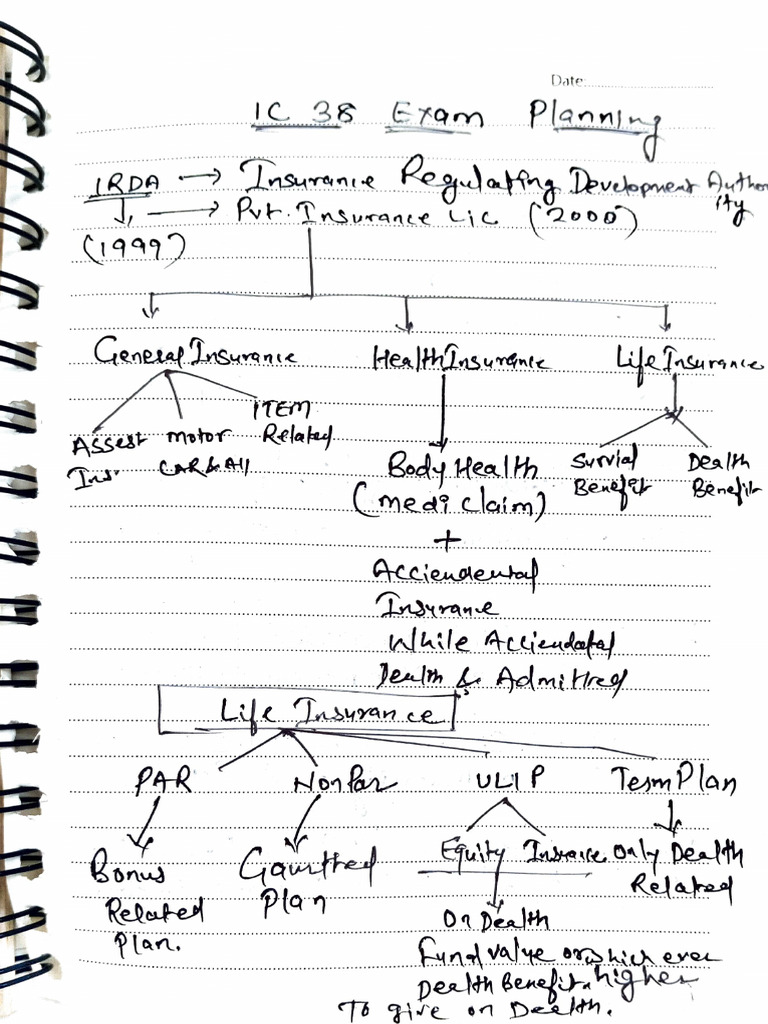 Date:
IC 38 Exam Planning
IRDA → Insurance Regulating Development Authority
→ Pvt. Insurance Lic (2000)
(1999)
General Insurance Health Insurance Life Insurance
Assest Ins. Motor CAR & All ITEM Related
Body Health
(medi claim)
Survial Benefit Dealth Benefit
+
Acciendental
Insurance
While Acciendatal
Dealth & Admitted
Life Insurance
PAR Non Par ULIP Term Plan
Bonus
Related
Plan.
Gaurtheed
Plan
Equity Insraice
Only Dealth
Related
On Dealth
Fund value or which ever
Dealth Benefit. higher
To give on Dealth.